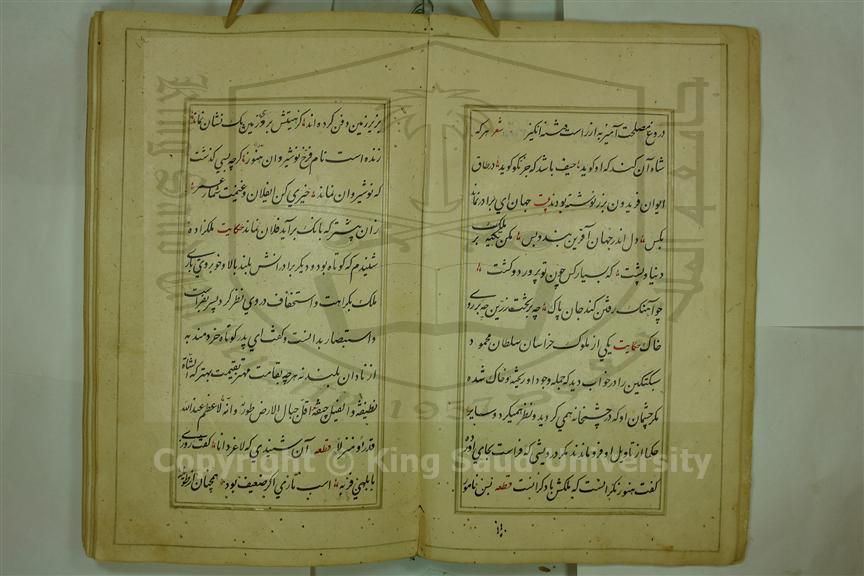 دروغ مصلحت آمیز به از راست فتنه انگیز شعر هر که
شاه آن کند که او کوید حیف باشد که جز نکو کوید در طاق
ایوان فریدون بزر نوشته بودند بیت جهان ای برادر نماند
بکس دل اندر جهان آفرین بند و بس مکن تکیه بر ملک
دنیا و پشت که بسیار کس چون تو پرورد و کشت
چو آهنک رفتن کند جان پاک چه بر تخت زرین چه بر روی
خاک حکایت یکی از ملوک خراسان سلطان محمود
سبکتکین را در خواب دید که جمله وجود او ریخته و خاک شده
مکر چشمان او که در چشمخانه همی کردید و نظر همیکرد و سایر
حکما از تاویل او فروماندند مکر درویشی که فراست بجای آورده
کفت هنوز نکرانست که ملکش با دکرانست قطعه بس نامور
بزیر زمین دفن کرده اند کز هستیش بروی زمین یک نشان نماند
زنده است نام فرخ نوشیروان هنوز کرچه بسی کذشت
که نوشیروان نماند خیری کن ای فلان و غنیمت شمار عمر
زان پیشتر که بانک برآید فلان نماند حکایت ملکزاده
شنیدم که کوتاه بود و دیکر برادرانش بلند بالا و خوبروی باری
ملک بکراهت و استخفاف در وی نظر کرد پسر بفراست
و استبصار بدانست و کفت ای پدر کوتاه خردمند به
از نادان بلند نه هرچه بقامت مهتر بقیمت بهتر که الشاة
نظیفة و الفیل جیفة اقل جبال الارض طور و انه لاعظم عند الله
قدرا و منزلا قطعه آن شنیدی که لاغر دانا کفت روزی
بابلهی فربه اسب تازی اکر ضعیف بود همچنان از طویله
Copyright © King Saud University
جامعة الملك سعود
King Saud
1957